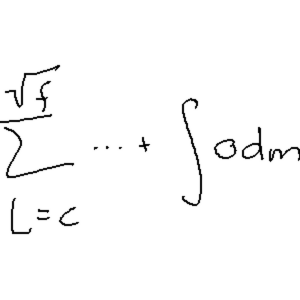 \sum_{L=c}^{\sqrt{f}} \dots + \int o dm